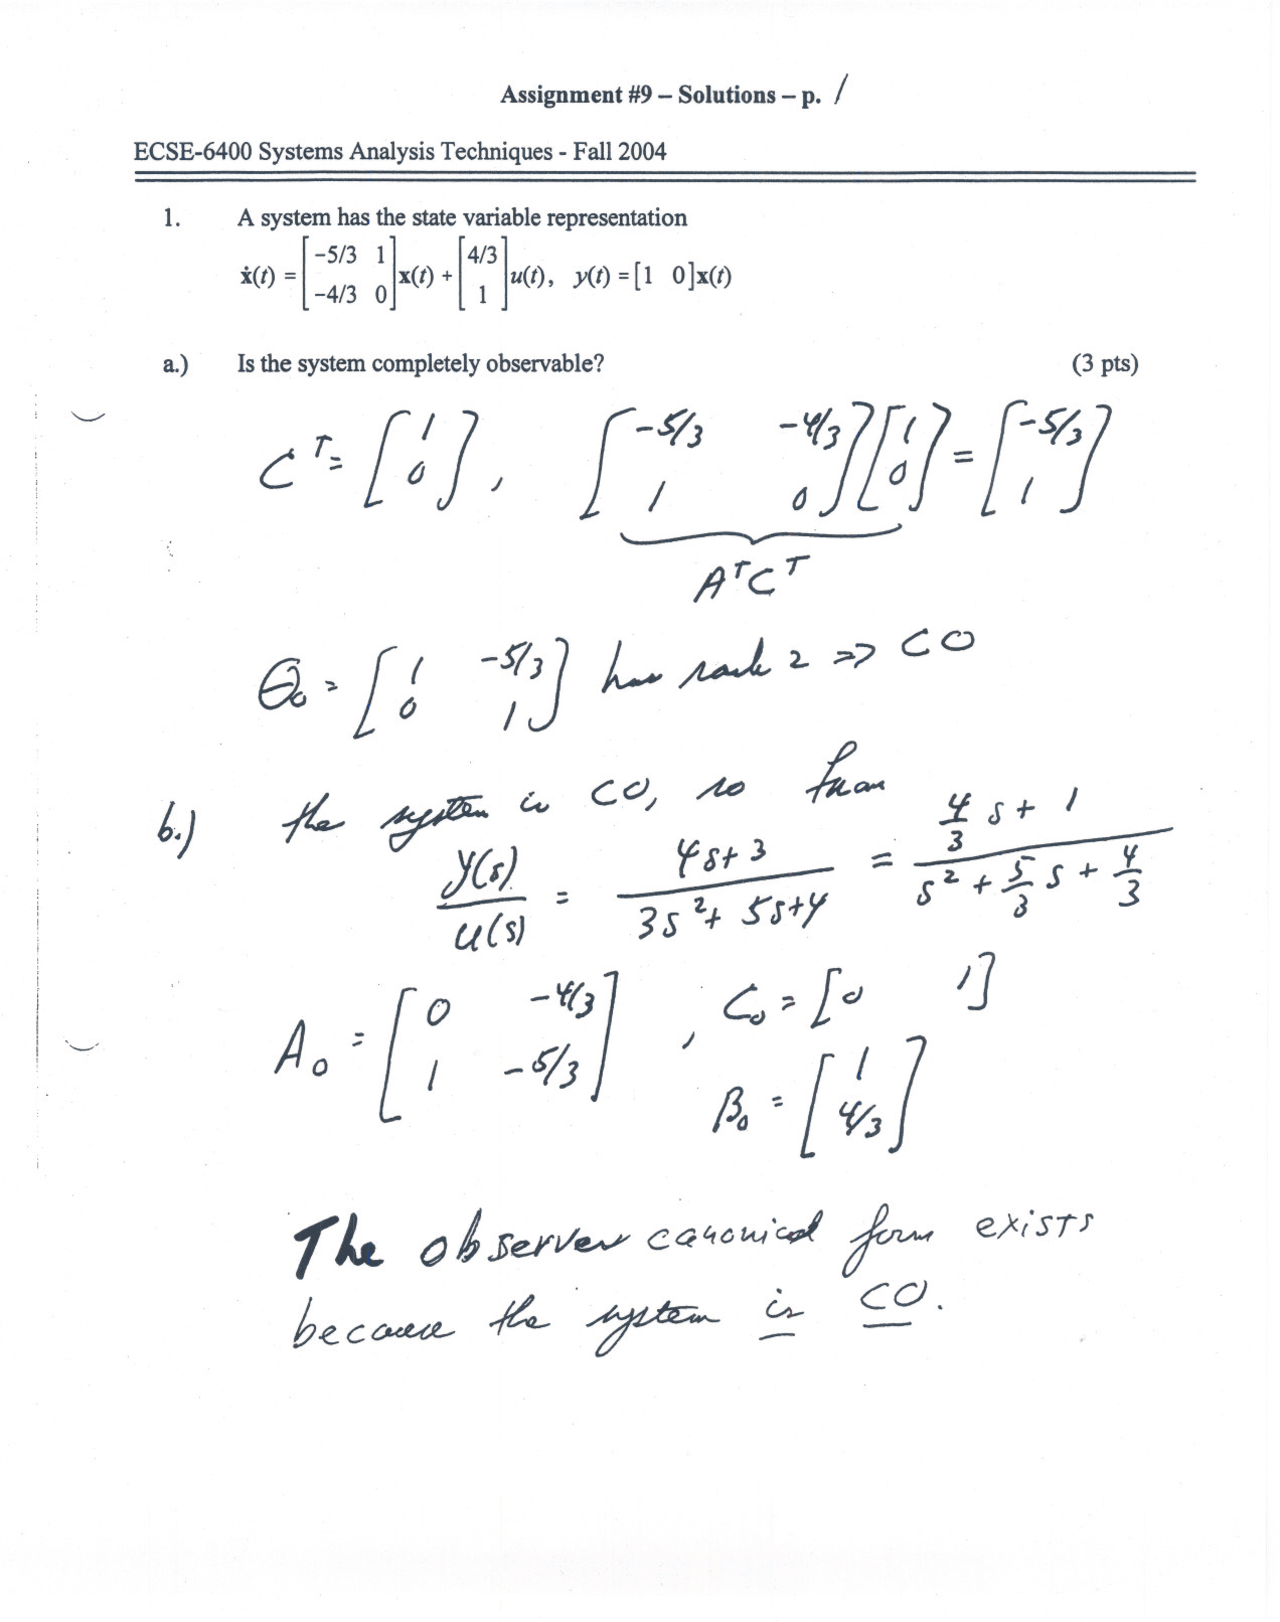 Assignment #9 – Solutions – p. 1
ECSE-6400 Systems Analysis Techniques - Fall 2004
1. A system has the state variable representation
ẋ(t) = [−5/3 1; −4/3 0] x(t) + [4/3; 1] u(t), y(t) = [1 0]x(t)
a.) Is the system completely observable? (3 pts)
C^T = [1; 0], [-5/3 -4/3; 1 0] [1; 0] = [-5/3; 1]
A^T C^T
Q₀ = [1 -5/3; 0 1] has rank 2 => CO
b.) the system is CO, so from
y(s)/u(s) = (4s+3)/(3s²+5s+4) = (4/3 s + 1)/(s² + 5/3 s + 4/3)
A₀ = [0 -4/3; 1 -5/3], C₀ = [0 1]
B₀ = [1; 4/3]
The observer canonical form exists
because the system is CO.